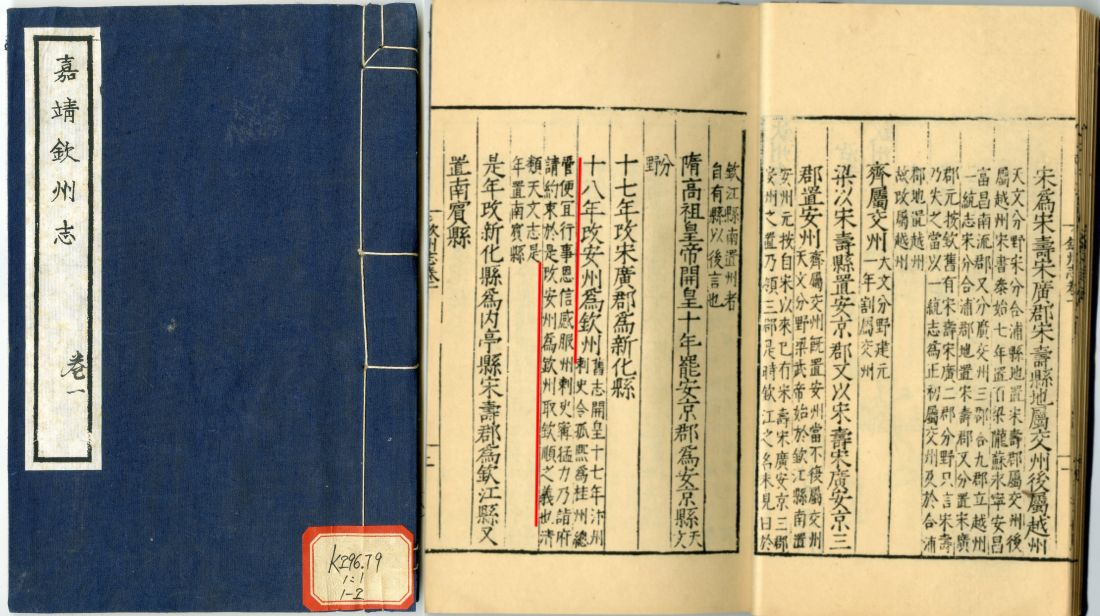 嘉靖欽州志
卷一
K296.79
1:1
1-2
宋爲宋壽宋廣郡宋壽縣地屬交州後屬越州
天文分野宋分合浦縣地置宋壽郡屬交州後
屬越州宋書泰始七年置百梁隴蘇永寧安昌
富昌南流郡又分廣州三郡合九郡立越州
一統志宋分合浦郡地置宋壽郡又分置宋廣
郡元按欽舊有宋壽宋廣二郡分野只言宋壽
乃失之當以一統志爲正初屬交州及於合浦
郡地置越州
故改屬越州
齊屬交州天文分野建元
一年割屬交州
梁以宋壽縣置安京郡又以宋壽宋廣安京三
郡置安州齊屬交州旣置安州當不復屬交州
天文分野梁武帝始於欽江縣南置
安州元按自宋以來已有宋壽宋廣安京三郡
安州之置乃領三郡是時欽江之名未見曰於
欽江縣南置州者
自有縣以後言也
隋高祖皇帝開皇十年罷安京郡爲安京縣天文
分野
十七年改宋廣郡爲新化縣
十八年改安州爲欽州舊志開皇十七年汴州
刺史令狐熙爲桂州總
管便宜行事恩信感服州刺史寗猛力乃詣府
請約束於是改安州爲欽州取欽順之義也清
類天文志是
年置南賓縣
是年改新化縣爲内亭縣宋壽郡爲欽江縣又
置南賓縣